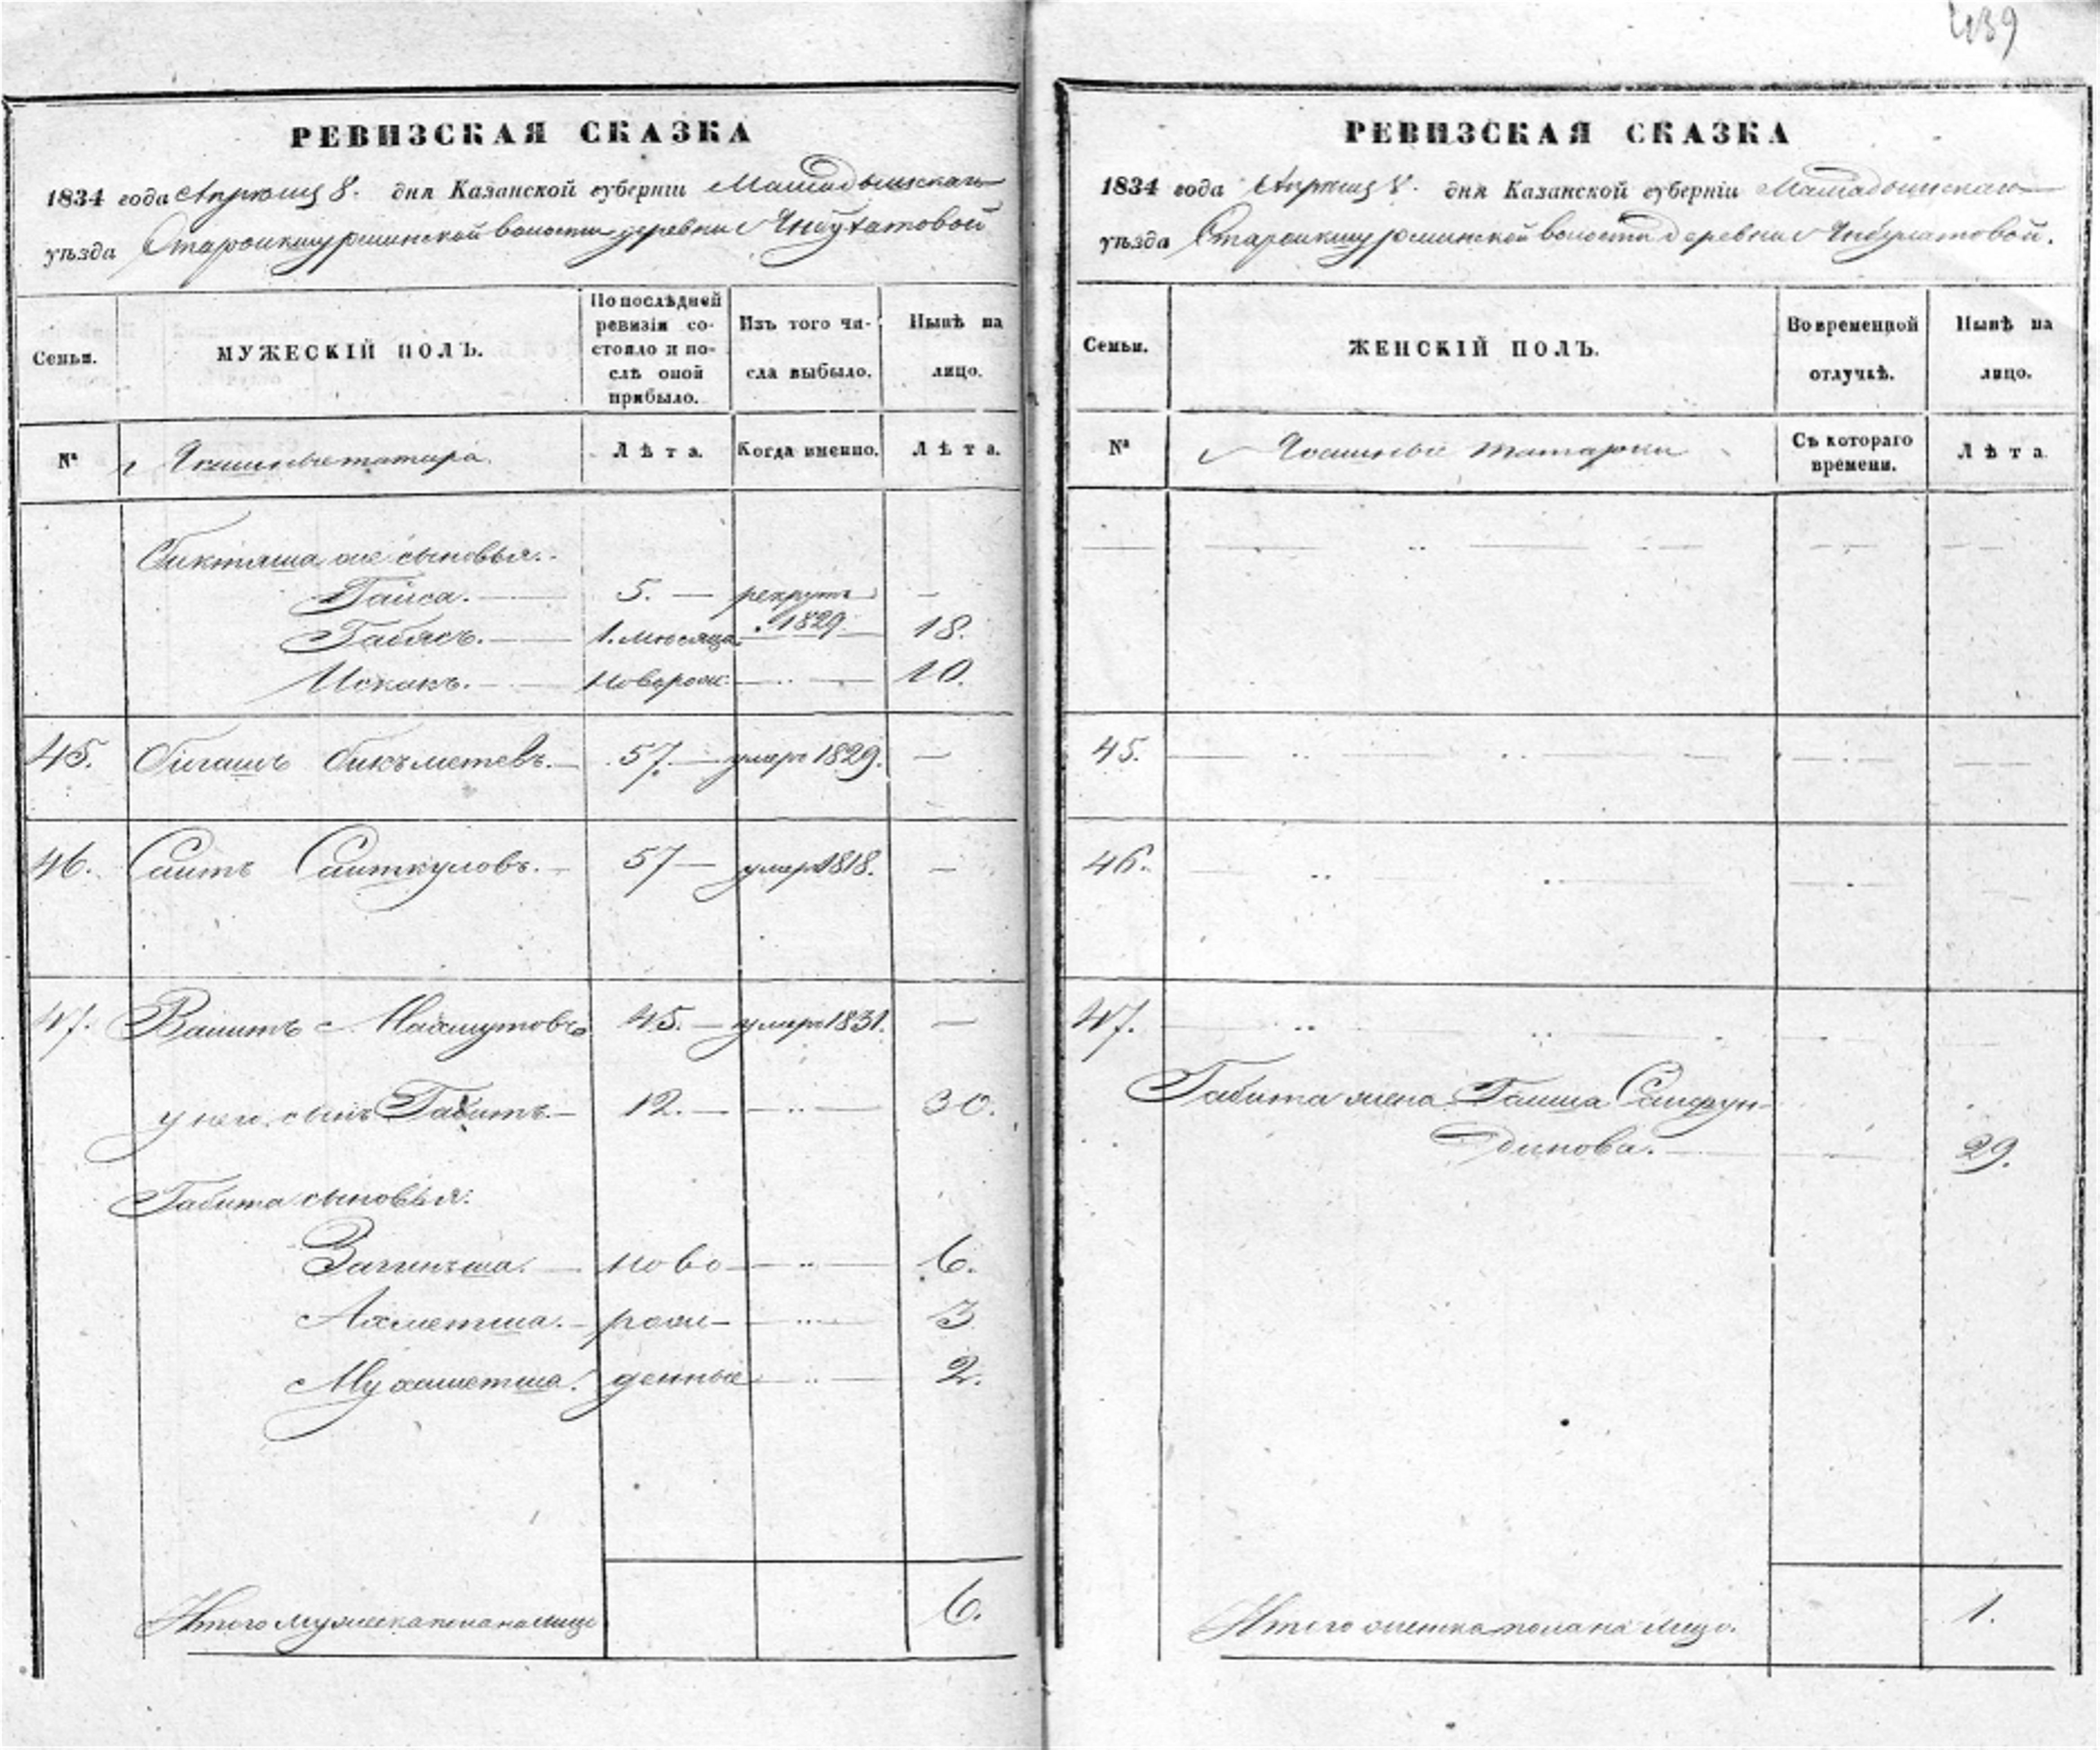 439
РЕВИЗСКАЯ СКАЗКА
1834 года Апрѣля 8. дня Казанской губерніи Мамадышскаго
уѣзда Староикшурминской волости деревни
МУЖЕСКІЙ ПОЛЪ.
Семьи.
По послѣдней ревизіи со-
стояло и по-
слѣ оной
прибыло.
Изъ того чи-
сла выбыло.
Нынѣ на
лицо.
№ татара Лѣта. Когда именно. Лѣта.
Бикташа же сыновья.
Гайса. 5. рекрутъ 1829 —
Габясъ. 1. мѣсяца 18.
Исхакъ. новорож. 10.
45. Бигашъ Бикъметевъ. 57. умеръ 1829. —
46. Саитъ Саиткуловъ. 57 умеръ 1818. —
47. Вагитъ Махмутовъ 45. умеръ 1831. —
у него сынъ Габитъ. 12. 30.
Габита сыновья:
Загинъша. ново 6.
Ахметша. рож- 3
Мухаметша. денные 2.
Итого мужеска пола на лицо 6.
РЕВИЗСКАЯ СКАЗКА
1834 года Апрѣля 8. дня Казанской губерніи Мамадышскаго
уѣзда Староикшурминской волости деревни
Семьи.
ЖЕНСКІЙ ПОЛЪ.
Во временной
отлучкѣ.
Нынѣ на
лицо.
№ татарки Съ котораго
времени. Лѣта
45.
46.
47.
Габита жена Гайша Сайфун-
динова. 29.
Итого женска пола на лицо. 1.